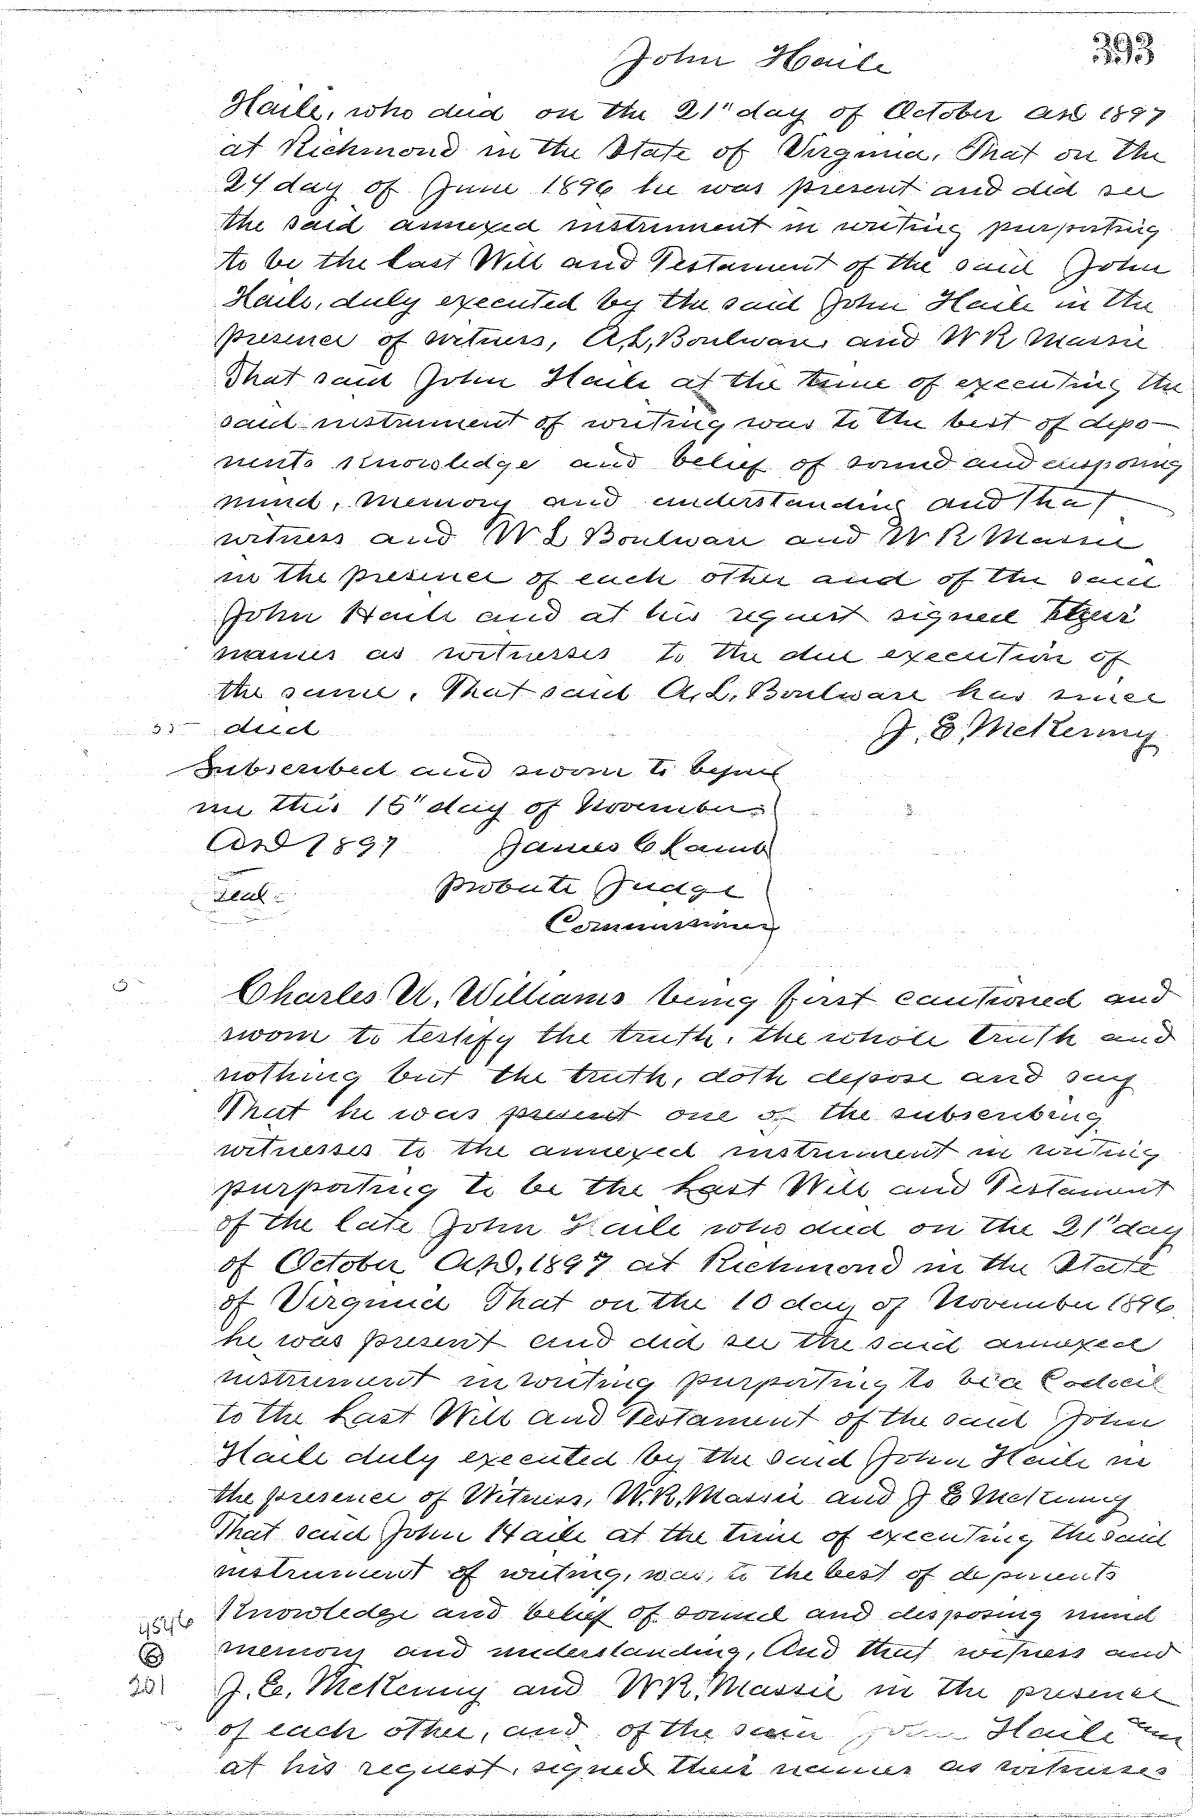 John Haile
393
Haile, who died on the 21" day of October AD 1897
at Richmond in the State of Virginia. That on the
24 day of June 1896 he was present and did see
the said annexed instrument in writing purporting
to be the last Will and Testament of the said John
Haile, duly executed by the said John Haile in the
presence of witness, A,L, Boulware and W R Massie
That said John Haile at the time of executing the
said instrument of writing was to the best of depo-
nents Knowledge and belief of sound and disposing
mind, memory and understanding and That
witness and W L Boulware and W R Massie
in the presence of each other and of the said
John Haile and at his request signed their
names as witnesses to the due execution of
the same. That said A.L. Boulware has since
died
J. E. McKenny
Subscribed and sworn to before
me this 15" day of November
AD 1897 James C Lamb
Seal Probate Judge
Commissioner
Charles U. Williams being first cautioned and
sworn to testify the truth, the whole truth and
nothing but the truth, doth depose and say
That he was present one of the subscribing
witnesses to the annexed instrument in writing
purporting to be the Last Will and Testament
of the late John Haile who died on the 21" day
of October A,D, 1897 at Richmond in the State
of Virginia That on the 10 day of November 1896
he was present and did see the said annexed
instrument in writing purporting to be a Codicil
to the Last Will and Testament of the said John
Haile duly executed by the said John Haile in
the presence of Witness, W.R. Massie and J E McKenny
That said John Haile at the time of executing the said
instrument of writing, was, to the best of deponents
Knowledge and belief of sound and disposing mind
memory and understanding, And that witness and
J. E. McKenny and W R. Massie in the presence
of each other, and of the said John Haile and
at his request, signed their names as witnesses
4546
6
201